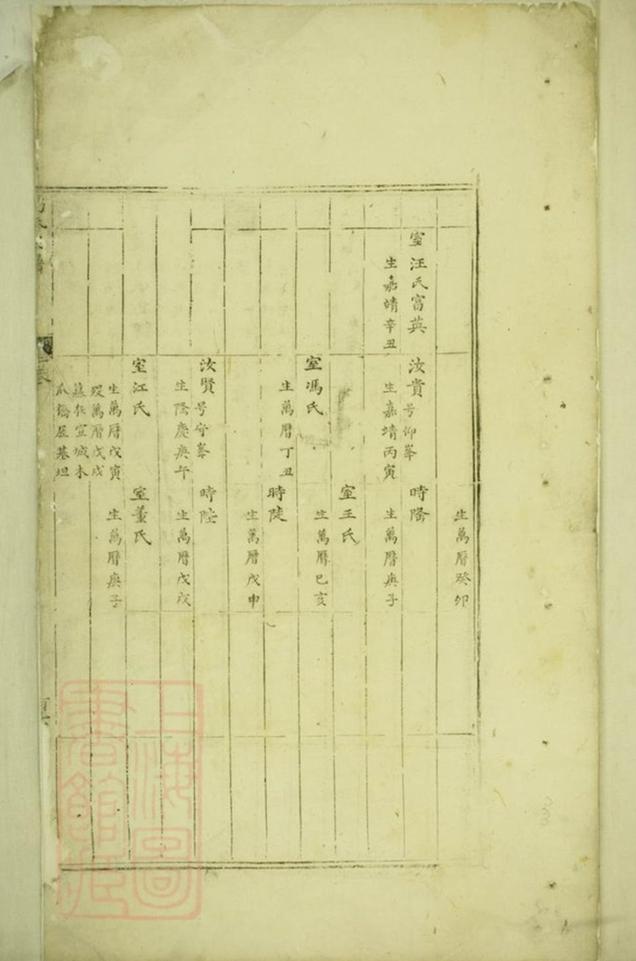 生萬曆癸卯
室汪氏富英
生嘉靖辛丑
汝貴号仰峯
生嘉靖丙寅
時隆
生萬曆庚子
室王氏
生萬曆己亥
室馮氏
生萬曆丁丑
時陡
生萬曆戊申
汝賢号守峯
生隆慶庚午
時陞
生萬曆戊戌
室江氏
生萬曆戊寅
歿萬曆戊戌
宣城木
屋基坦
室董氏
生萬曆庚子
上海圖書館藏